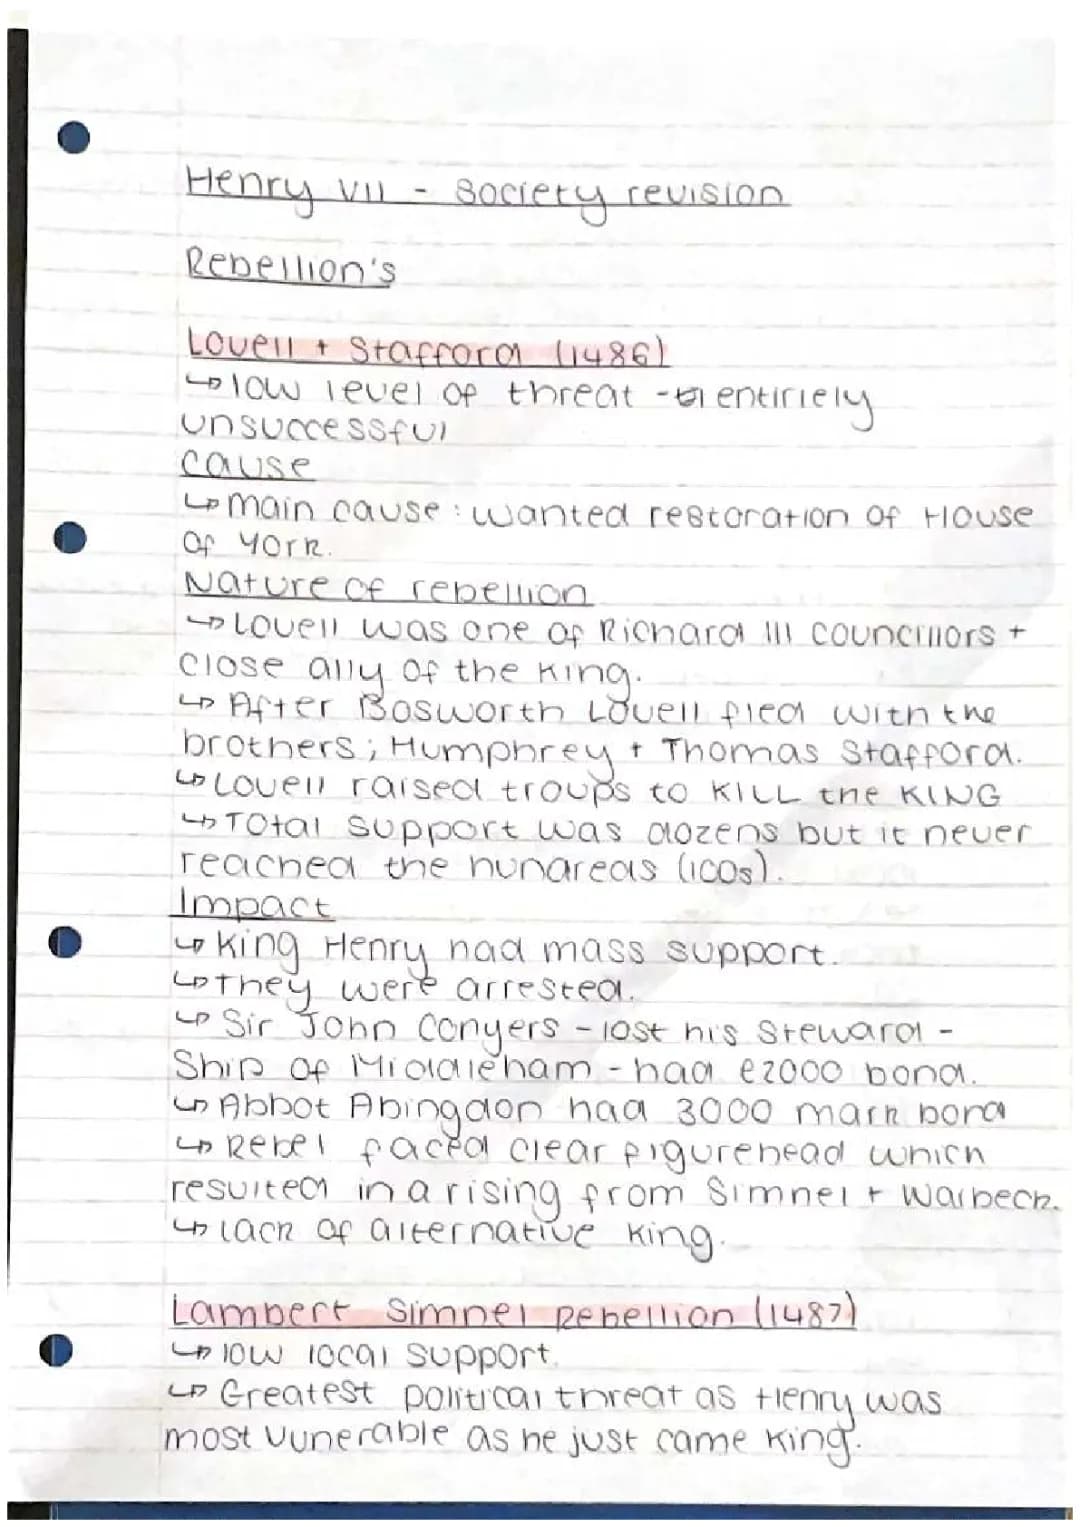 Henry VII - Society revision
Rebellion's
Lovell + Stafford (1486)
↳ low level of threat - entiriely
unsuccessful
cause
↳ main cause: wanted restoration of House
of York.
Nature of rebellion
↳ Lovell was one of Richard III councillors +
close ally of the King.
↳ After Bosworth Lovell fled with the
brothers; Humphrey + Thomas Stafford.
↳ Lovell raised troups to KILL the KING
↳ Total support was dozens but it never
reached the hundreds (100s).
Impact
↳ King Henry had mass support.
↳ they were arrested.
↳ Sir John Conyers - lost his Steward-
Ship of Middleham - had £2000 bond.
↳ Abbot Abingdon had 3000 mark bond
↳ Rebel faced clear figurehead which
resulted in a rising from Simnel + Warbeck.
↳ lack of alternative King.
Lambert Simnel Rebellion (1487)
↳ low local support.
↳ Greatest political threat as Henry was
most vunerable as he just came King.